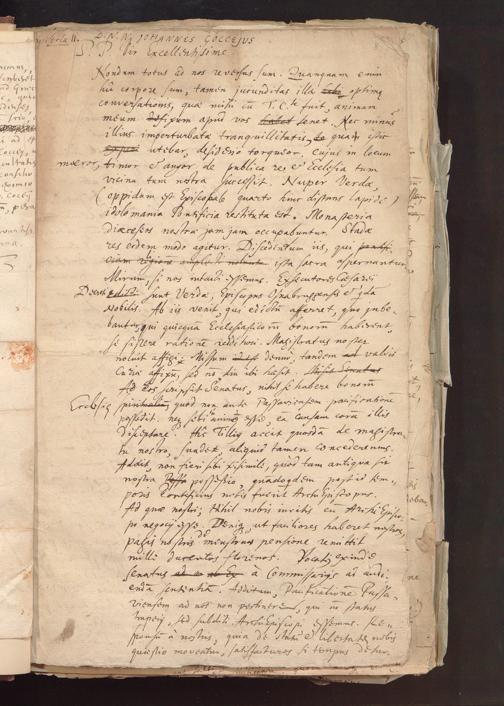 D. N. N. JOHANNES COCCEJUS
S. P. Vir Excellentissime
Nondum totus ad nos reversus sum. Quanquam enim
hic corpore sum, tamen jucunditas illa optimæ
conversationis, quæ mihi cu T. Cl. fuit, animam
meum apud vos tenet. Nec minus
illius imperturbata tranquillitatis, quam istic
utebar, desiderio torqueor, cujus in locum
mœror, timor et angor de publica re, et Ecclesia tum
vicina tum nostra successit. Nuper Verdæ,
(oppidum est Episcopale quarto hinc distans lapide)
idolomania Pontificia restituta est. Monasteria
diœceseos nostræ jam jam occupabuntur. Stadæ
res eodem modo agitur. Diffidentum iis, qui
ista sacra aspernantur.
Mirum, si nos intacti essemus. Executores Cæsarei
sunt Verdæ, Episcopus Osnabrugensis et qda
Nobilis. Ab iis venit, qui edictu afferret, quo jube-
bantur, qui quicqua Ecclesiasticom bonorum haberent,
se sistere ratione reddituri. Magistratus noster
noluit affigi. Missum denuo, tandem valvis
Curiæ affixu, sed no diu ibi hæsit.
Ad eos scripsit Senatus, nihil se habere bonorum
Ecclesiæ quod non ante Passaviensem pacificatione
possedit. neq sibi animus esse, ea causam cora illis
disceptare. His Tillius accit quosda de magistra
tu nostro, suadet, aliquid tamen concederemus.
Addit, non fieri sibi, quod tam antiqua sit
nostra possessio, quandoqdem post id tem-
poris Pontificius nobis fuerit ArchiEpiscopus.
Ad quæ nostri; Nihil nobis invitis cu ArchiEpisco-
po negocij esse. Deniq, ut faciliores haberet nostros,
pagis nostris de menstrua pensione remittit
mille ducentos florenos. Vocatq exinde
senatus à Commissarijs ad audi-
enda sententia. Additum, Pacificatione Passa-
viensem ad nos non pertinere, qui no status
Imperij, sed subditi ArchiEpiscopi essemus. Re-
sponsu à nostris, quia de statu et libertate nobis
quæstio moveatur, satisfacturos si tempus detur.